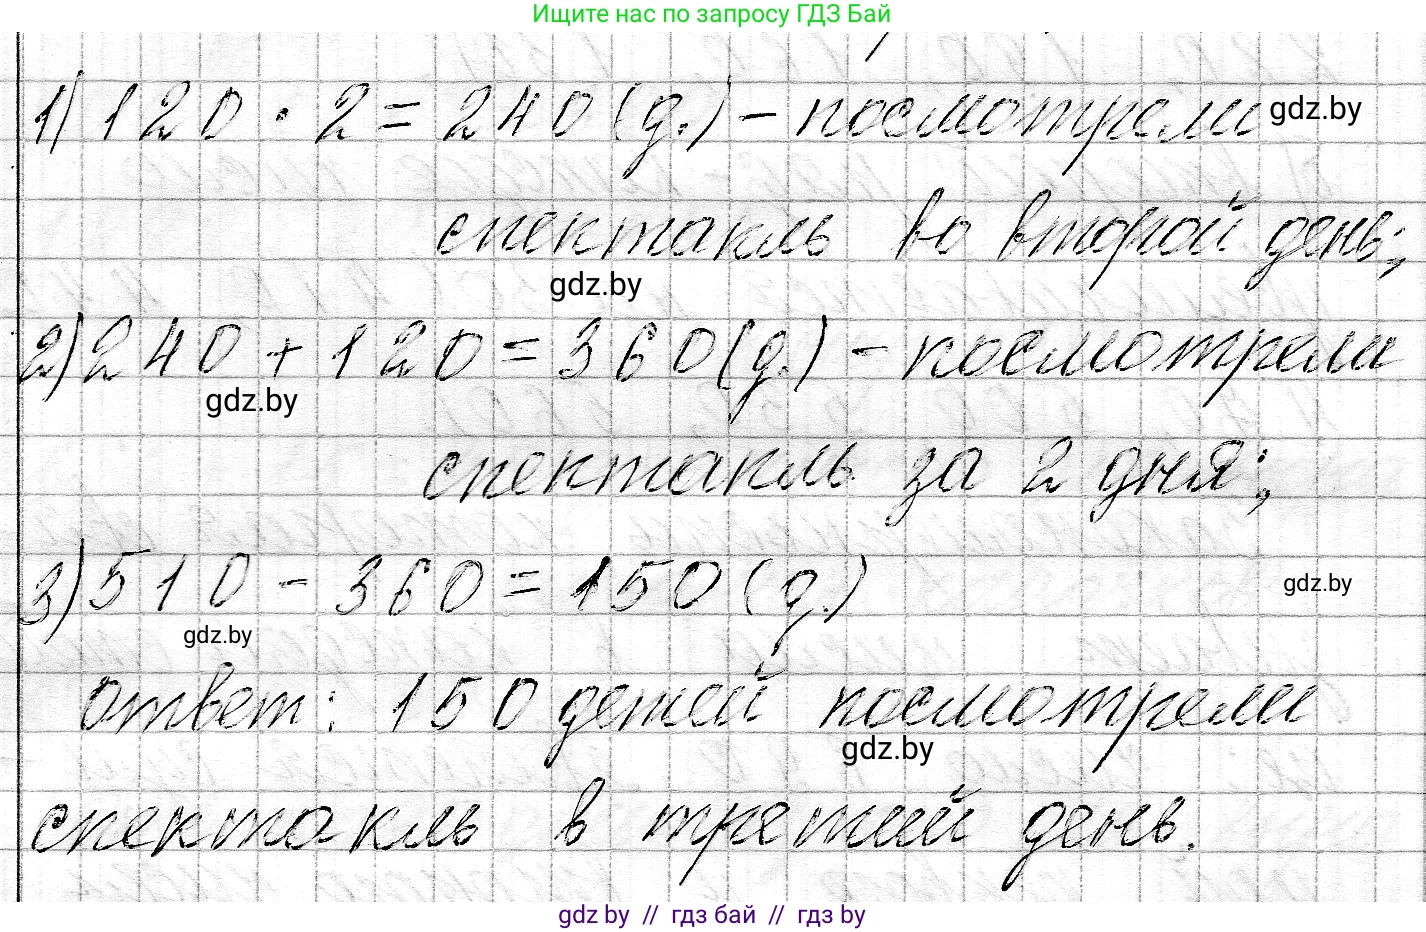 Ищите нас по запросу ГДЗ Бай
1) 120 · 2 = 240 (д.) – посмотрели gdz.by
спектакль во второй день;
gdz.by
2) 240 + 120 = 360 (д.) – посмотрели
gdz.by
спектакль за 2 дня;
3) 510 - 360 = 150 (д.)
gdz.by
gdz.by
ответ: 150 детей посмотрели
gdz.by
спектакль в третий день.
gdz by // гдз бай // гдз by